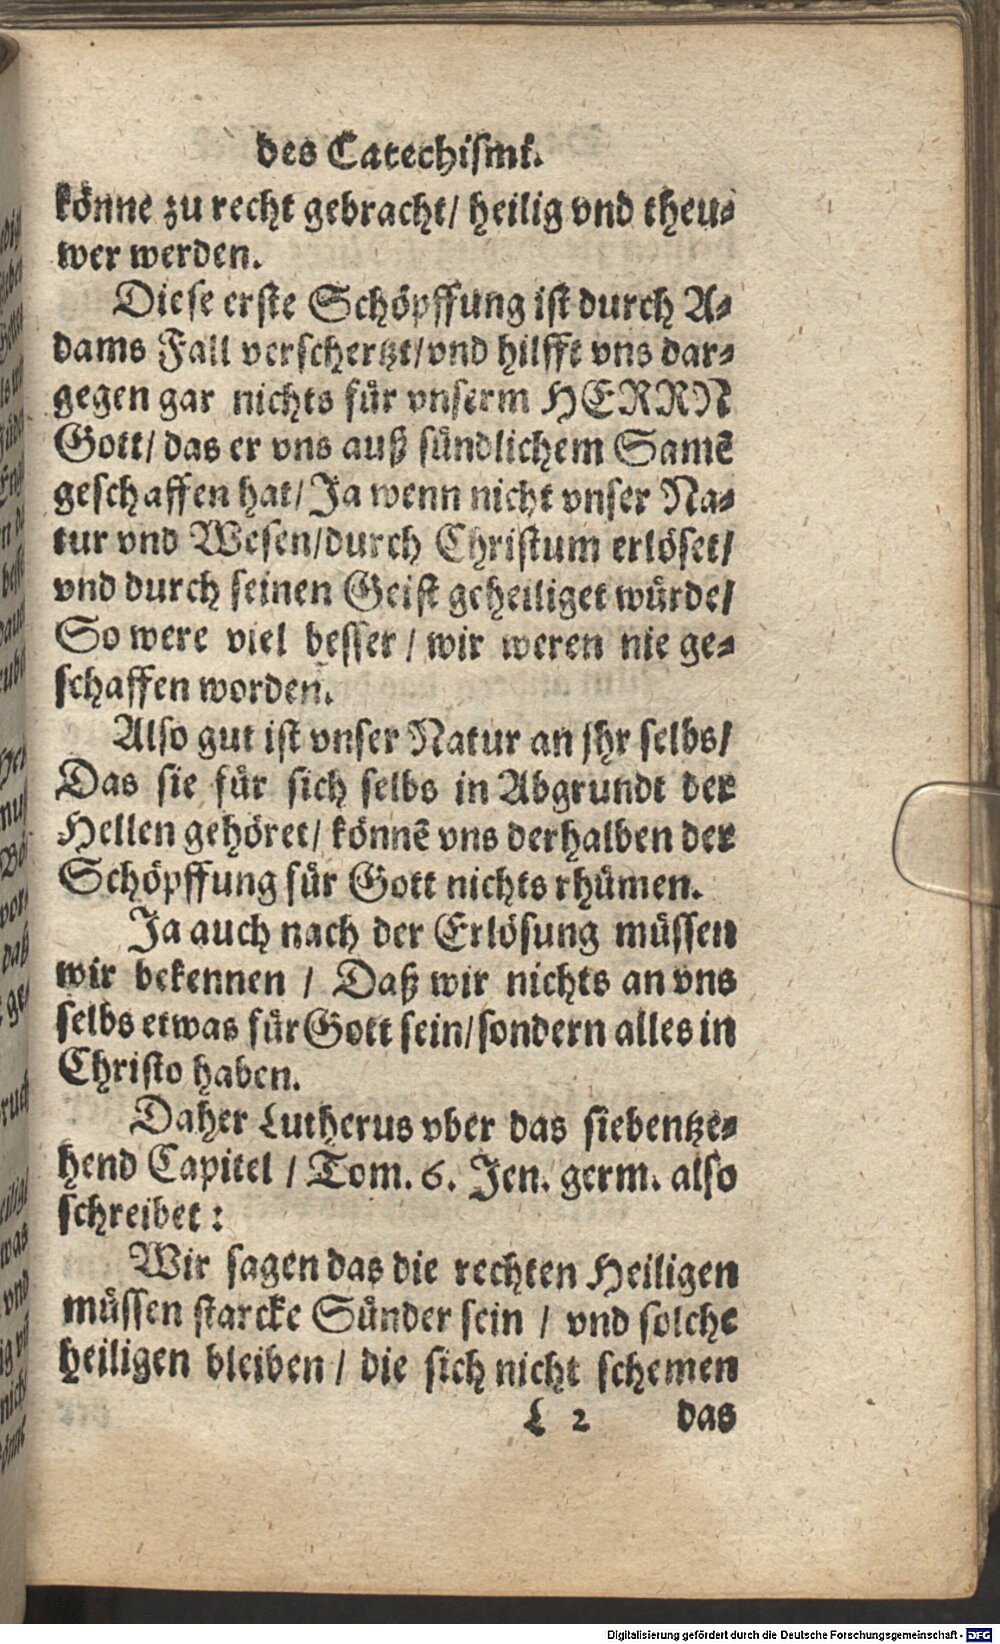 des Catechismi.
könne zu recht gebracht/ heilig vnd theu⸗
wer werden.
Diese erste Schöpffung ist durch A⸗
dams Fall verschertzt/vnd hilfft vns dar⸗
gegen gar nichts für vnserm HERRN
Gott/ das er vns auß sündlichem Samē
geschaffen hat/ Ja wenn nicht vnser Na⸗
tur vnd Wesen/durch Christum erlöset/
vnd durch seinen Geist geheiliget würde/
So were viel besser / wir weren nie ge⸗
schaffen worden.
Also gut ist vnser Natur an jhr selbs/
Das sie für sich selbs in Abgrundt der
Hellen gehöret/ könnē vns derhalben der
Schöpffung für Gott nichts rhümen.
Ja auch nach der Erlösung müssen
wir bekennen / Daß wir nichts an vns
selbs etwas für Gott sein/sondern alles in
Christo haben.
Daher Lutherus vber das siebentze⸗
hend Capitel / Tom. 6. Jen. germ. also
schreibet:
Wir sagen das die rechten Heiligen
müssen starcke Sünder sein / vnd solche
heiligen bleiben / die sich nicht schemen
L 2 das
Digitalisierung gefördert durch die Deutsche Forschungsgemeinschaft - DFG